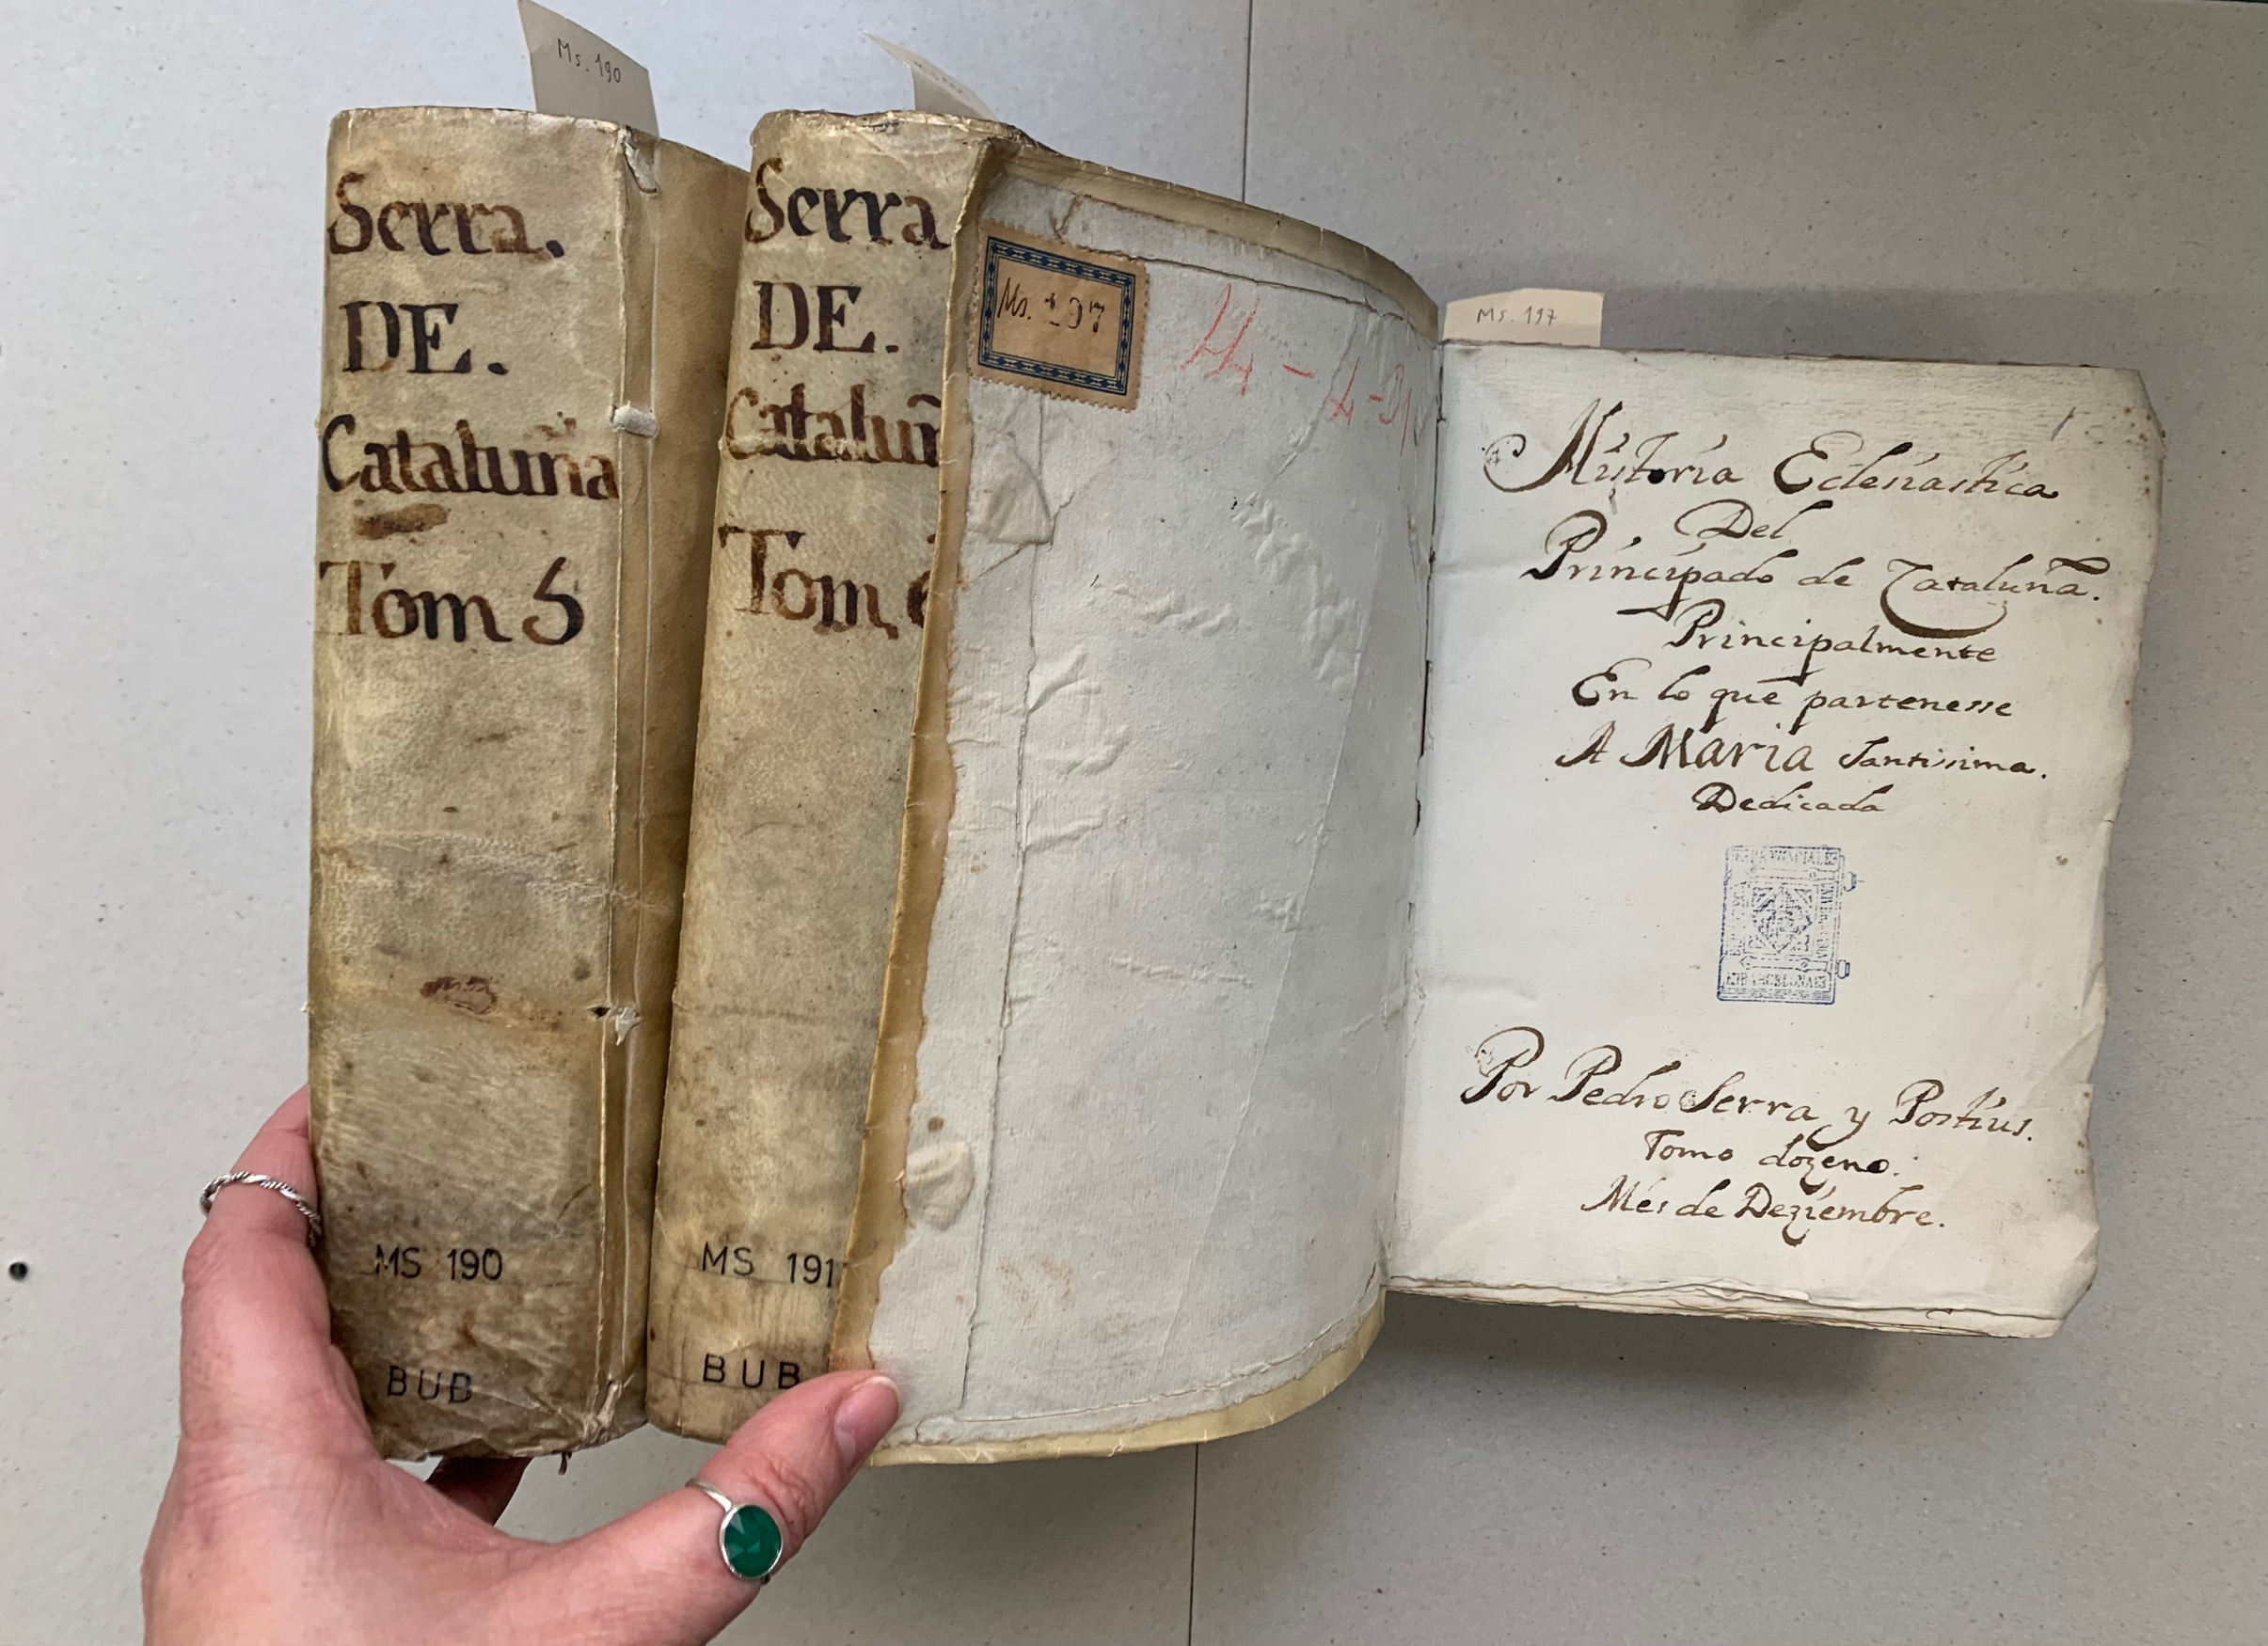 Ms. 190
Serra.
DE.
Cataluña
Tom 5
MS 190
BUB
Serra
DE.
Cataluñ
Tom, 6
MS 191
BUB
Ms. 197
Ms. 197
1
Historia Eclesiastica
Del
Principado de Cataluña.
Principalmente
En lo que partenesse
A Maria Santissima.
Dedicada
Por Pedro Serra y Postius.
Tomo dozeno.
Mes de Deziembre.